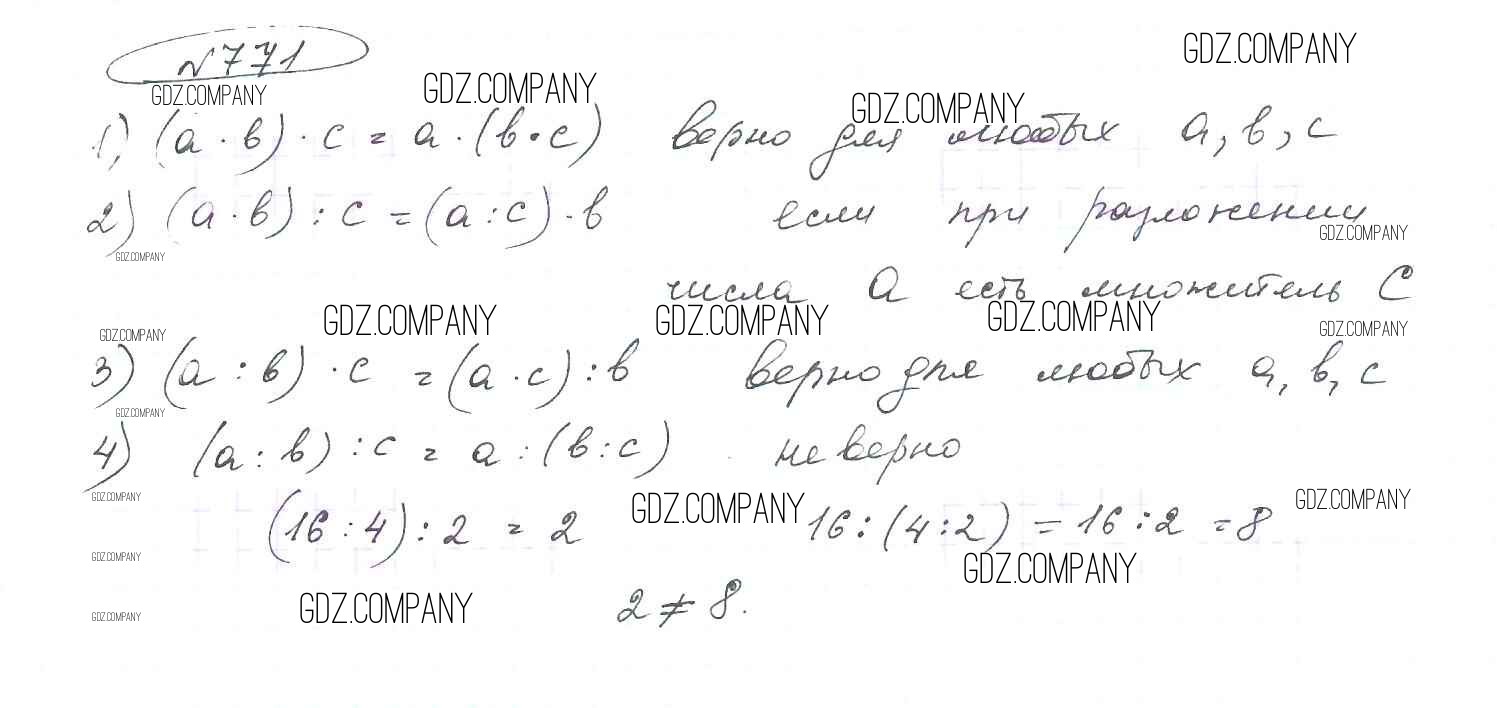 №771
GDZ.COMPANY
GDZ.COMPANY GDZ.COMPANY GDZ.COMPANY
1) (a · b) · c = a · (b · c) верно для любых a, b, c
2) (a · b) : c = (a : c) · b если при разложении
GDZ.COMPANY GDZ.COMPANY
числа a есть множитель C
GDZ.COMPANY GDZ.COMPANY GDZ.COMPANY GDZ.COMPANY GDZ.COMPANY
3) (a : b) · c = (a · c) : b верно для любых a, b, c
GDZ.COMPANY
4) (a : b) : c = a : (b : c) не верно
GDZ.COMPANY GDZ.COMPANY GDZ.COMPANY
(16 : 4) : 2 = 2 16 : (4 : 2) = 16 : 2 = 8
GDZ.COMPANY GDZ.COMPANY
GDZ.COMPANY GDZ.COMPANY 2 ≠ 8.